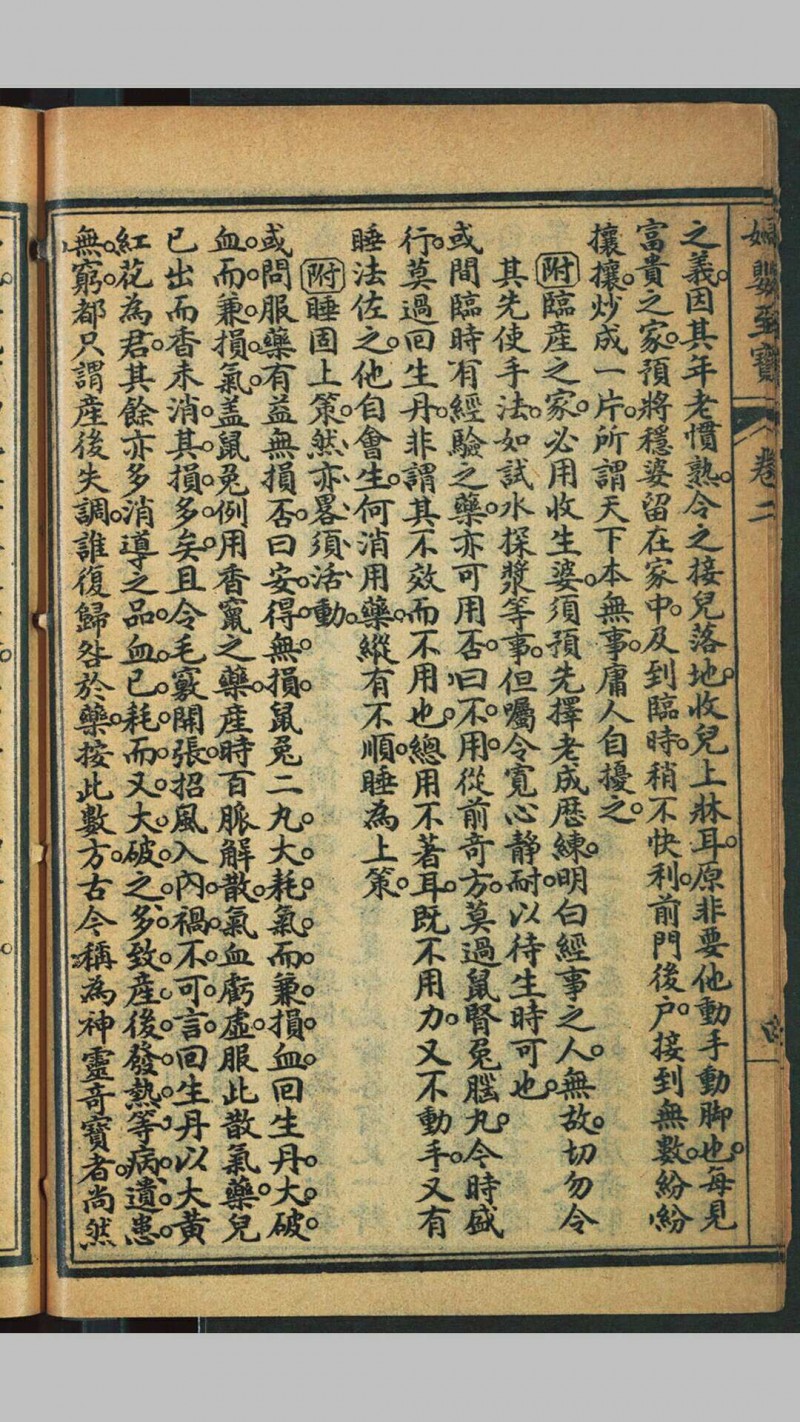 婦嬰至寶 卷二
之義。因其年老慣熟。令之接兒落地。收兒上牀耳。原非要他動手動脚也。每見
富貴之家。預將穩婆留在家中。及到臨時。稍不快利。前門後户。接到無數。紛紛
攘攘。炒成一片。所謂天下本無事。庸人自擾之。
附臨產之家。必用收生婆。須預先擇老成歷練。明白經事之人。無故。切勿令
其先使手法。如試水探漿等事。但囑令寬心靜耐。以待生時可也。
或問臨時有經驗之藥。亦可用否。曰。不用。從前奇方。莫過鼠腎兔腦丸。今時盛
行。莫過回生丹。非謂其不效而不用也。總用不著耳。既不用力。又不動手。又有
睡法佐之。他自會生。何消用藥。縱有不順。睡為上策。
附睡固上策。然亦畧須活動。
或問服藥有益無損否。曰。安得無損。鼠兔二丸。大耗氣。而兼損血。回生丹。大破
血。而兼損氣。盖鼠兔例用香竄之藥。產時百脈解散。氣血虧虛。服此散氣藥。兒
已出而香未消。其損多矣。且令毛竅開張。招風入內。禍不可言。回生丹以大黃
紅花為君。其餘亦多消導之品。血已耗而又大破之。多致產後發熱等病。遺患
無窮。都只謂產後失調。誰復歸咎於藥。按此數方。古今稱為神靈奇寶者。尚然